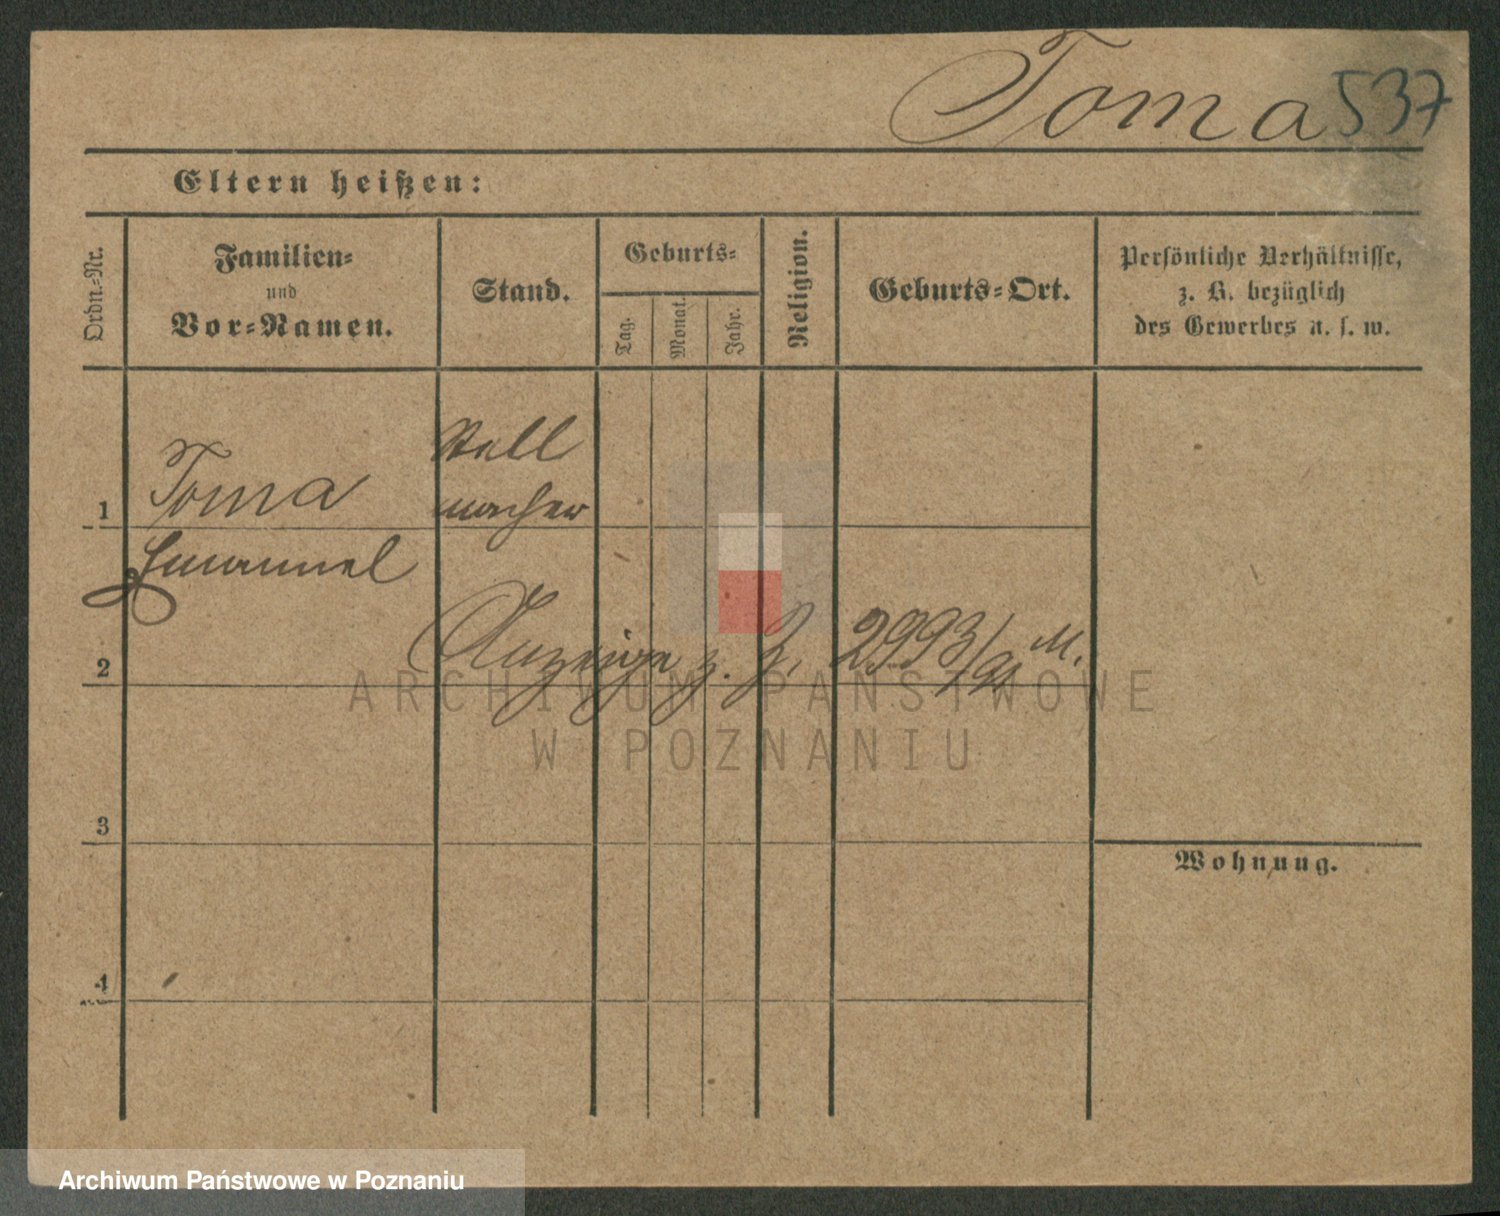 Toma 537
Eltern heißen:
Ordn.-Nr.
Familien-
und
Vor-Namen.
Stand.
Geburts-
Tag.
Monat.
Jahr.
Religion.
Geburts-Ort.
Persönliche Verhältnisse,
z. B. bezüglich
des Gewerbes u. s. w.
1
Toma
Stell
macher
Emanuel
2
Anzeige z. J. 2993/91 M.
ARCHIWUM PAŃSTWOWE
W POZNANIU
3
Wohnung.
4
Archiwum Państwowe w Poznaniu